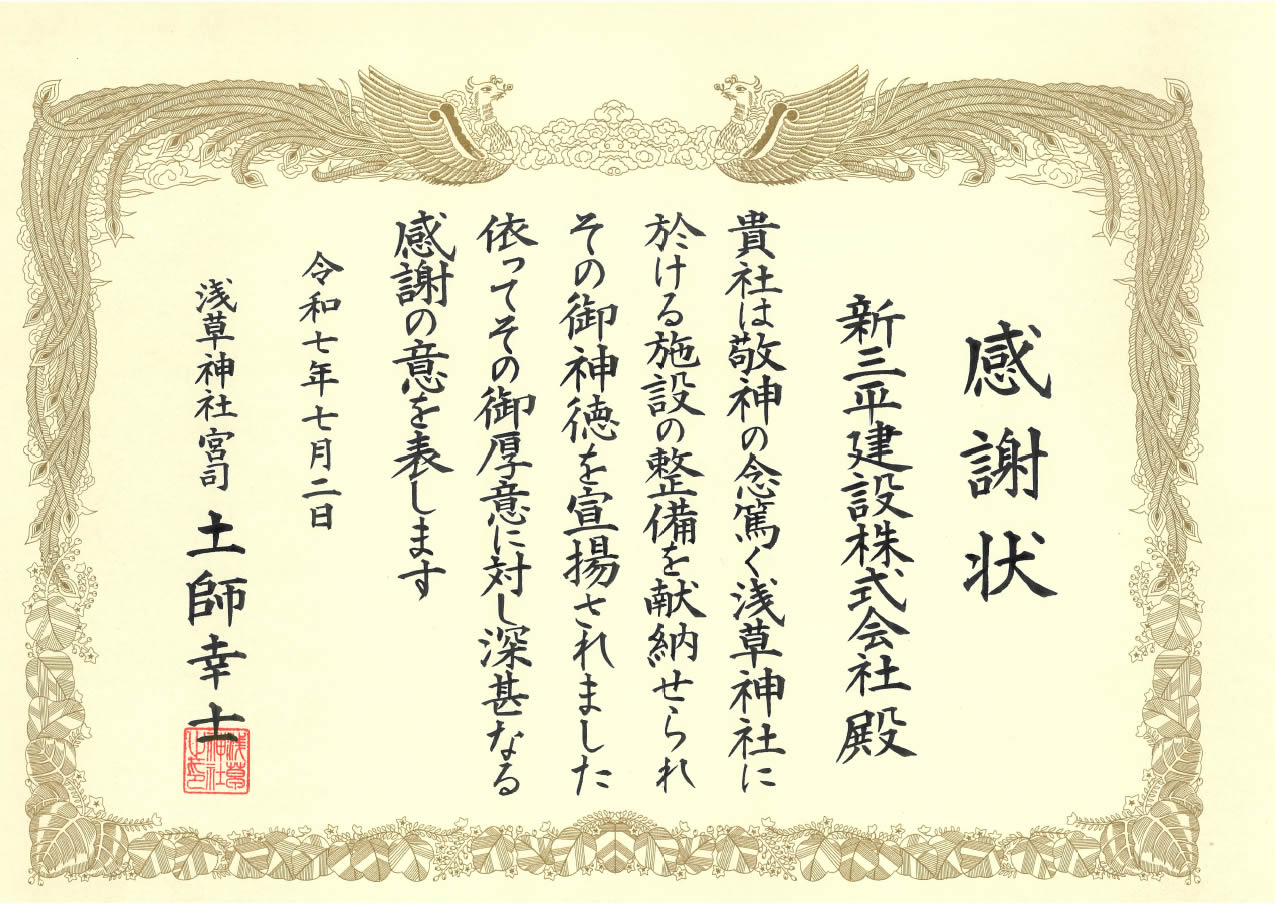 感謝状
新三平建設株式会社 殿
貴社は敬神の念篤く浅草神社に
於ける施設の整備を献納せられ
その御神徳を宣揚されました
依ってその御厚意に対し深甚なる
感謝の意を表します
令和七年七月二日
浅草神社宮司 土師幸士
浅草
神社
之印